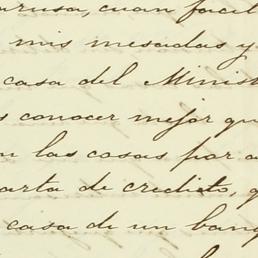 arusa, cuan facil
mis mesadas y
casa del Minist
s conocer mejor qu
n las cosas por a
carta de credito, q
casa de un banq